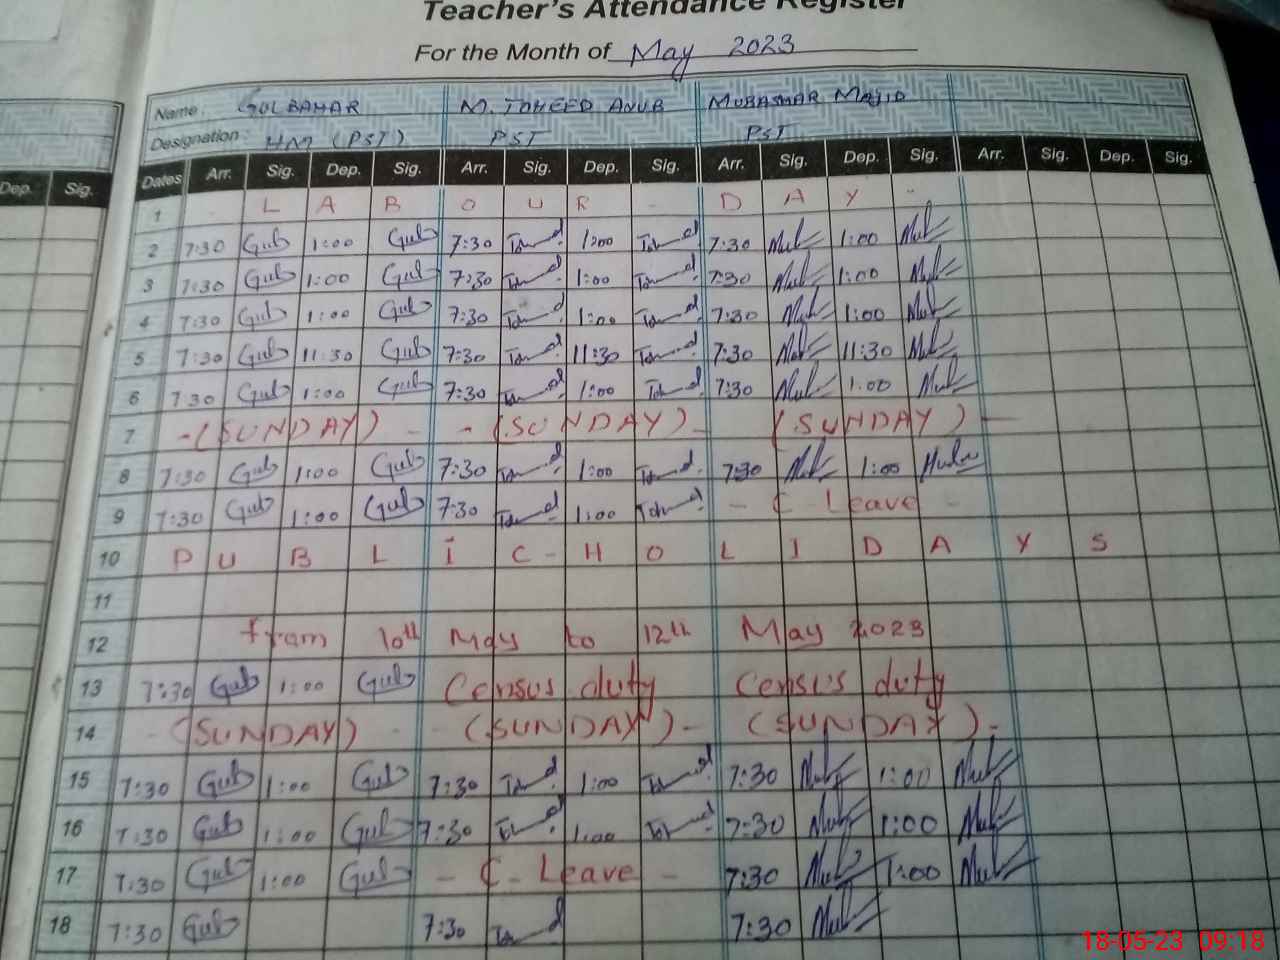 Teacher's Attendance Register
For the Month of May 2023
Name: GULBAHAR M. TOHEED AYUB MUBASHAR MAJID
Designation: HM (PST) PST PST
Dep. Sig. Dates Arr. Sig. Dep. Sig. Arr. Sig. Dep. Sig. Arr. Sig. Dep. Sig. Arr. Sig. Dep. Sig.
1 L A B O U R D A Y
2 7:30 Gul 1:00 Gul 7:30 1:00 7:30 1:00
3 7:30 Gul 1:00 Gul 7:30 1:00 7:30 1:00
4 7:30 Gul 1:00 Gul 7:30 1:00 7:30 1:00
5 7:30 Gul 11:30 Gul 7:30 11:30 7:30 11:30
6 7:30 Gul 1:00 Gul 7:30 1:00 7:30 1:00
7 -(SUNDAY) - - (SUNDAY) - (SUNDAY) -
8 7:30 Gul 1:00 Gul 7:30 1:00 7:30 1:00
9 7:30 Gul 1:00 Gul 7:30 1:00 - C Leave -
10 P U B L I C - H O L I D A Y S
11
12 from 10th May to 12th May 2023
13 7:30 Gul 1:00 Gul Census duty Census duty
14 - (SUNDAY) - - (SUNDAY) - (SUNDAY) -
15 7:30 Gul 1:00 Gul 7:30 1:00 7:30 1:00
16 7:30 Gul 1:00 Gul 7:30 1:00 7:30 1:00
17 7:30 Gul 1:00 Gul - C - Leave - 7:30 1:00
18 7:30 Gul 7:30 7:30
18-05-23 09:18